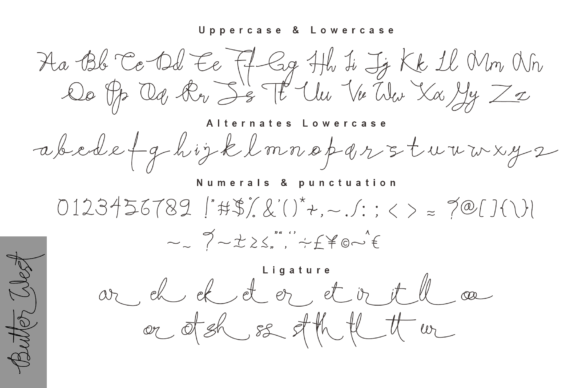 Uppercase & Lowercase
Aa Bb Cc Dd Ee Ff Gg Hh Ii Jj Kk Ll Mm Nn
Oo Pp Qq Rr Ss Tt Uu Vv Ww Xx Yy Zz
Alternates Lowercase
a b c d e f g h i j k l m n o p q r s t u v w x y z
Numerals & punctuation
0123456789 !*#$% &'()*+,-./: ; < > = ?@[]{\}|
Ligature
ar ch ck ct er et ir it ll oo
or ot sh ss st th tl tt ur
Butter West